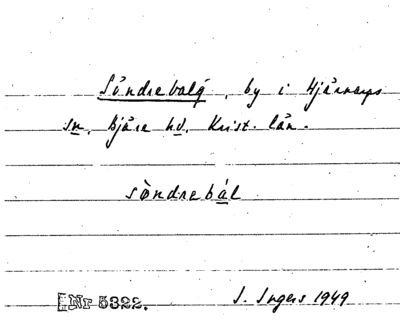 Söndrebalg, by i Hjärnarps
sn, Bjäre hd, Krist. län.
söndrebál
Nr 5322.
I. Ingers 1949